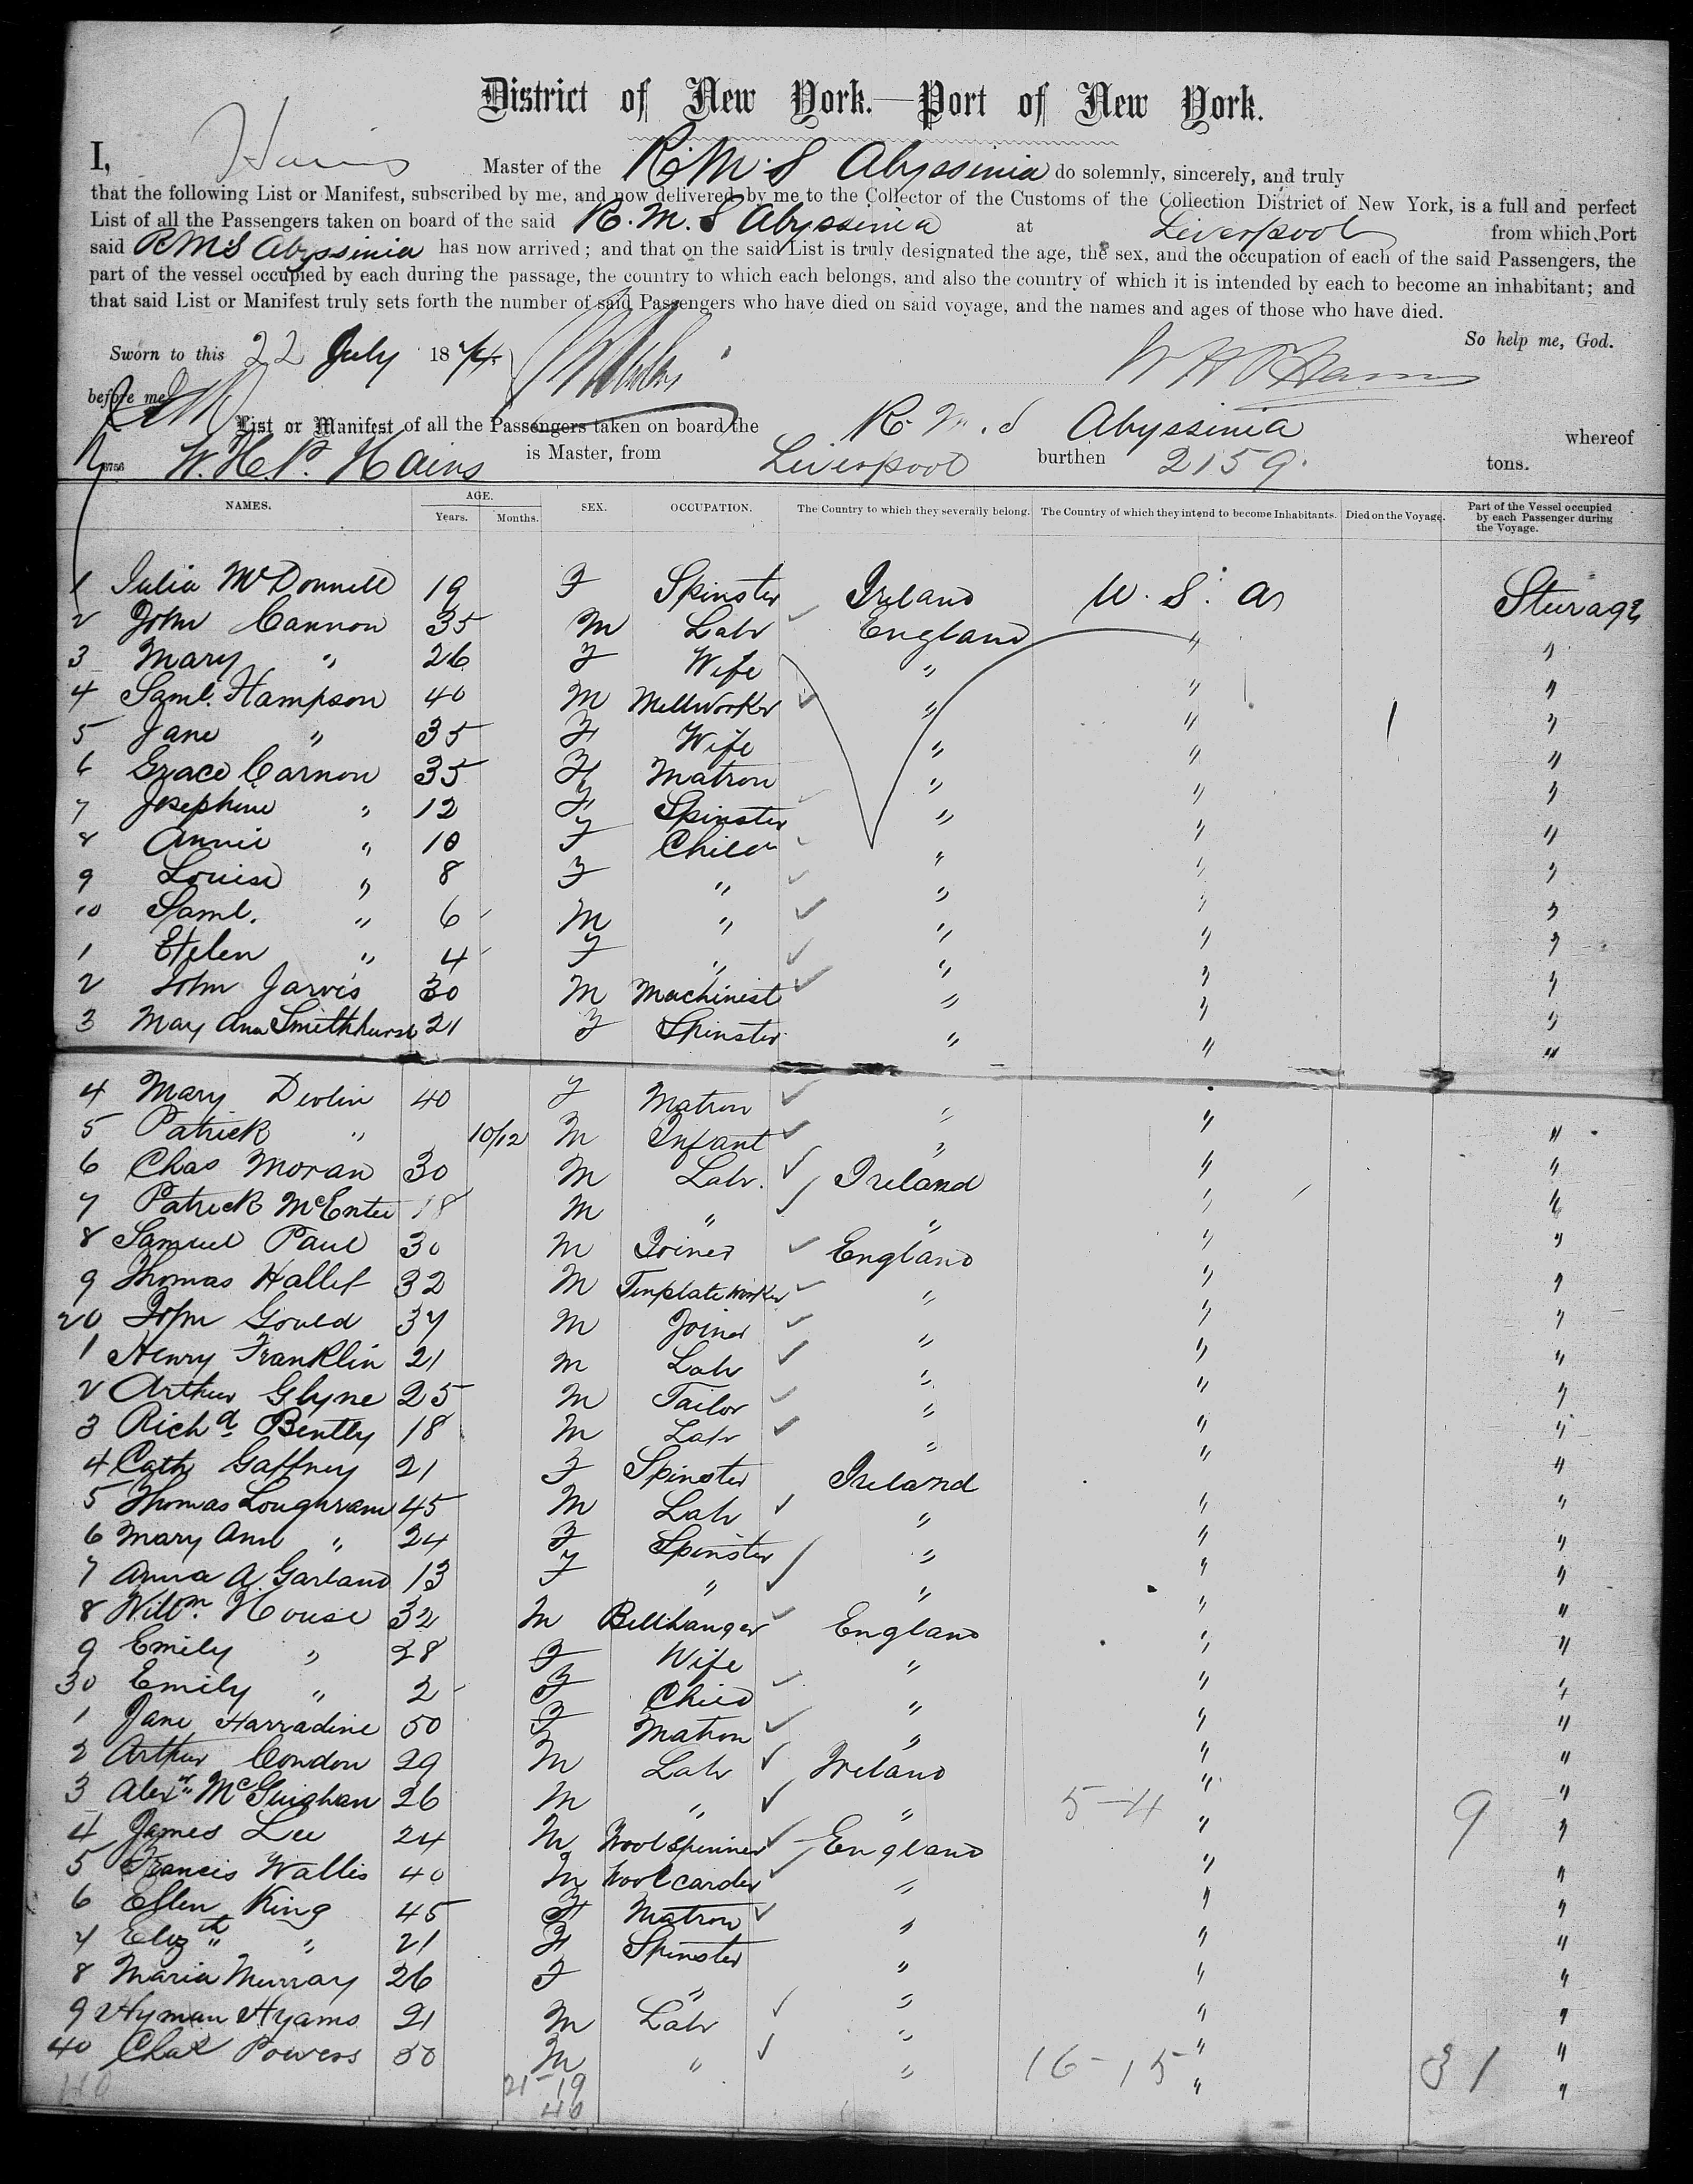 District of New York.—Port of New York.
I, Hains Master of the R.M.S Abyssinia do solemnly, sincerely, and truly
that the following List or Manifest, subscribed by me, and now delivered by me to the Collector of the Customs of the Collection District of New York, is a full and perfect
List of all the Passengers taken on board of the said R.M.S Abyssinia at Liverpool from which Port
said RMS Abyssinia has now arrived; and that on the said List is truly designated the age, the sex, and the occupation of each of the said Passengers, the
part of the vessel occupied by each during the passage, the country to which each belongs, and also the country of which it is intended by each to become an inhabitant; and
that said List or Manifest truly sets forth the number of said Passengers who have died on said voyage, and the names and ages of those who have died.
So help me, God.
Sworn to this 22 July 1874
before me
List or Manifest of all the Passengers taken on board the R.M.S Abyssinia whereof
W.H.P. Hains is Master, from Liverpool burthen 2159. tons.
NAMES. AGE. SEX. OCCUPATION. The Country to which they severally belong. The Country of which they intend to become Inhabitants. Died on the Voyage. Part of the Vessel occupied by each Passenger during the Voyage.
Years. Months.
1 Julia McDonnell 19 F Spinster Ireland U.S.A Sturage
2 John Cannon 35 M Labr England " "
3 Mary " 26 F Wife " " "
4 Saml. Hampson 40 M Millworker " " "
5 Jane " 35 F Wife " " "
6 Grace Carnon 35 F Matron " " "
7 Josephine " 12 F Spinster " " "
8 Annie " 10 F Child " " "
9 Louisa " 8 F " " " "
10 Saml. " 6 M " " " "
1 Helen " 4 F " " " "
2 John Jarvis 30 M Machinist " " "
3 May Ann Smithhurst 21 F Spinster " " "
4 Mary Devlin 40 F Matron " " "
5 Patrick " 10/12 M Infant " " "
6 Chas Moran 30 M Labr. Ireland " "
7 Patrick McEntee 18 M " " " "
8 Samuel Paul 30 M Joiner England " "
9 Thomas Hallet 32 M Tinplate worker " " "
20 John Gould 37 M Joiner " " "
1 Henry Franklin 21 M Labr " " "
2 Arthur Glyne 25 M Tailor " " "
3 Richd Bently 18 M Labr " " "
4 Cath Gaffney 21 F Spinster Ireland " "
5 Thomas Loughram 45 M Labr " " "
6 Mary Ann " 24 F Spinster " " "
7 Anna A. Garland 13 F " " " "
8 Willm. House 32 M Bellhanger England " "
9 Emily " 28 F Wife " " "
30 Emily " 2 F Child " " "
1 Jane Harradine 50 F Matron " " "
2 Arthur Condon 29 M Labr Ireland " "
3 Alexr McGuighan 26 M " " 5-4 " "
4 James Lee 24 M Woolspinner England " 9 "
5 Francis Wallis 40 M Woolcarder " " "
6 Ellen King 45 F Matron " " "
7 Elizth " 21 F Spinster " " "
8 Maria Murray 26 F " " " "
9 Hyman Hyams 21 M Labr " " "
40 Chas Powers 50 M " " 16-15 " 31 "
40 21-19
40